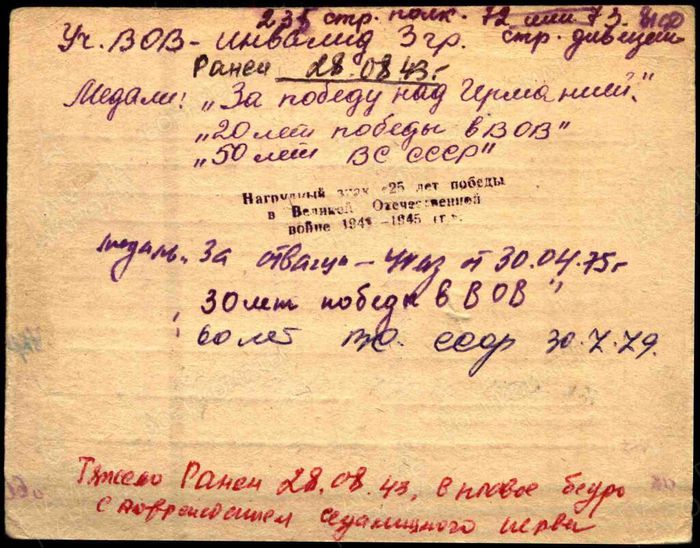 235 стр. полк. 72 или 73
Уч. ВОВ - инвалид 3 гр. стр. дивизии
Ранен 28.08.43 г
Медали: „За победу над Германией".
„20 лет победы в ВОВ"
„50 лет ВС СССР"
Нагрудный знак «25 лет победы
в Великой Отечественной
войне 1941-1945 гг.»
медаль „За отвагу - Указ от 30.04.75 г
„30 лет победы в ВОВ"
60 лет СССР 30.7.79.
Тяжело Ранен 28.08.43, в бедро
с повреждением седалищного нерва